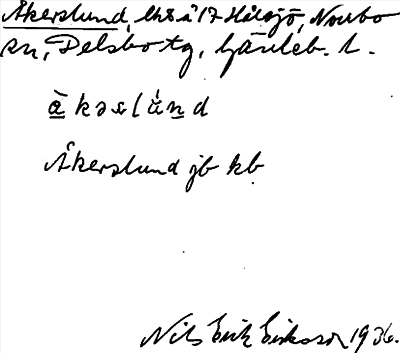 Åkerslund, lht å 17 Hålsjö, Norrbo
sn, Delsbo tg, Gävleb. l.
àkəslùnd
Åkerslund jb kb
Nils Erik Eriksson 1936.